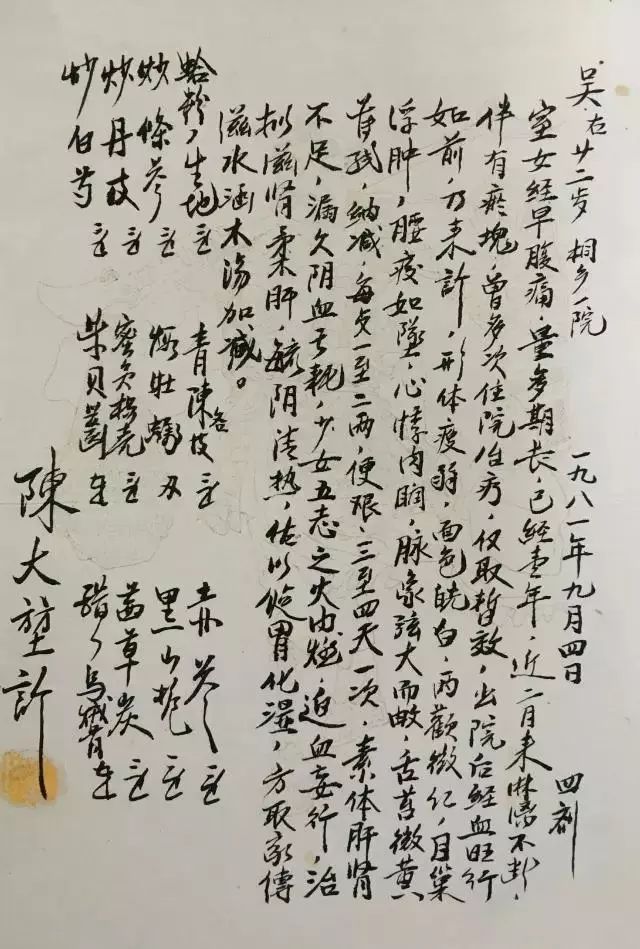 吴右 廿二岁 桐乡一院 一九八一年九月四日 四剂
室女经早腹痛,量多期长,已经壹年,近二月来淋漓不断,
伴有瘀块,曾多次住院治疗,仅取暂效,出院后经血旺行
如前,乃来诊,形体疲弱,面色㿠白,两颧微红,目窠
浮肿,腰疫如坠,心悸肉瞤,脉象弦大而芤,舌苔微黄
薄残,纳减,每员一至二两,便艰,三至四天一次,素体肝肾
不足,漏久阴血亏耗,少女五志之火内燃,迫血妄行,治
拟滋肾柔肝,毓阴清热,佐以和胃化湿,方取家传
滋水涵木汤加减。
蛤粉 生地 青陈各 玄参
炒条参 煅牡蛎 黑山栀
炒丹皮 蜜炙 壳 茜草炭
炒白芍 紫贝齿 乌贼骨
陈大堃诊